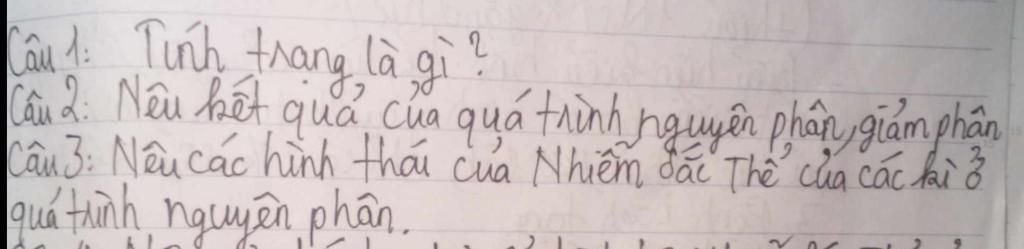 Câu 1: Tính trạng là gì?
Câu 2: Nêu kết quả của quá trình nguyên phân, giảm phân
Câu 3: Nêu các hình thái của Nhiễm sắc Thể của các kì ở
quá trình nguyên phân.